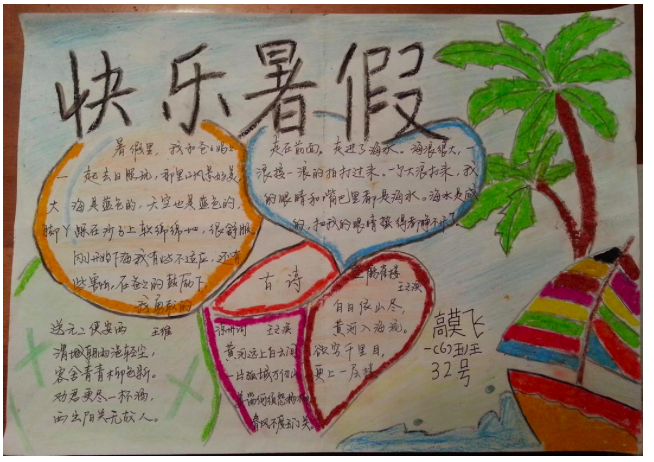 快乐暑假
暑假里，我和爸爸妈妈
一起去日照玩，那里的风景好美
大海是蓝色的，天空也是蓝色的，
脚丫踩在沙子上软绵绵的，很舒服
刚开始下海我有些不适应，还有
些害怕，在爸爸的鼓励下
我勇敢的
走在前面，走进了海水。海浪很大，一
浪接一浪的拍打过来。一个大浪打来，我
的眼睛和嘴巴里都是海水。海水是咸
的，把我的眼睛
古诗
送元二使安西 王维
渭城朝雨浥轻尘，
客舍青青柳色新。
劝君更尽一杯酒，
西出阳关无故人。
凉州词 王之涣
黄河远上白云间
一片孤城万仞山
羌笛何须怨杨柳
春风不度玉门关。
登鹳雀楼
王之涣
白日依山尽，
黄河入海流。
欲穷千里目，
更上一层楼
高莫飞
一(6)班
32号